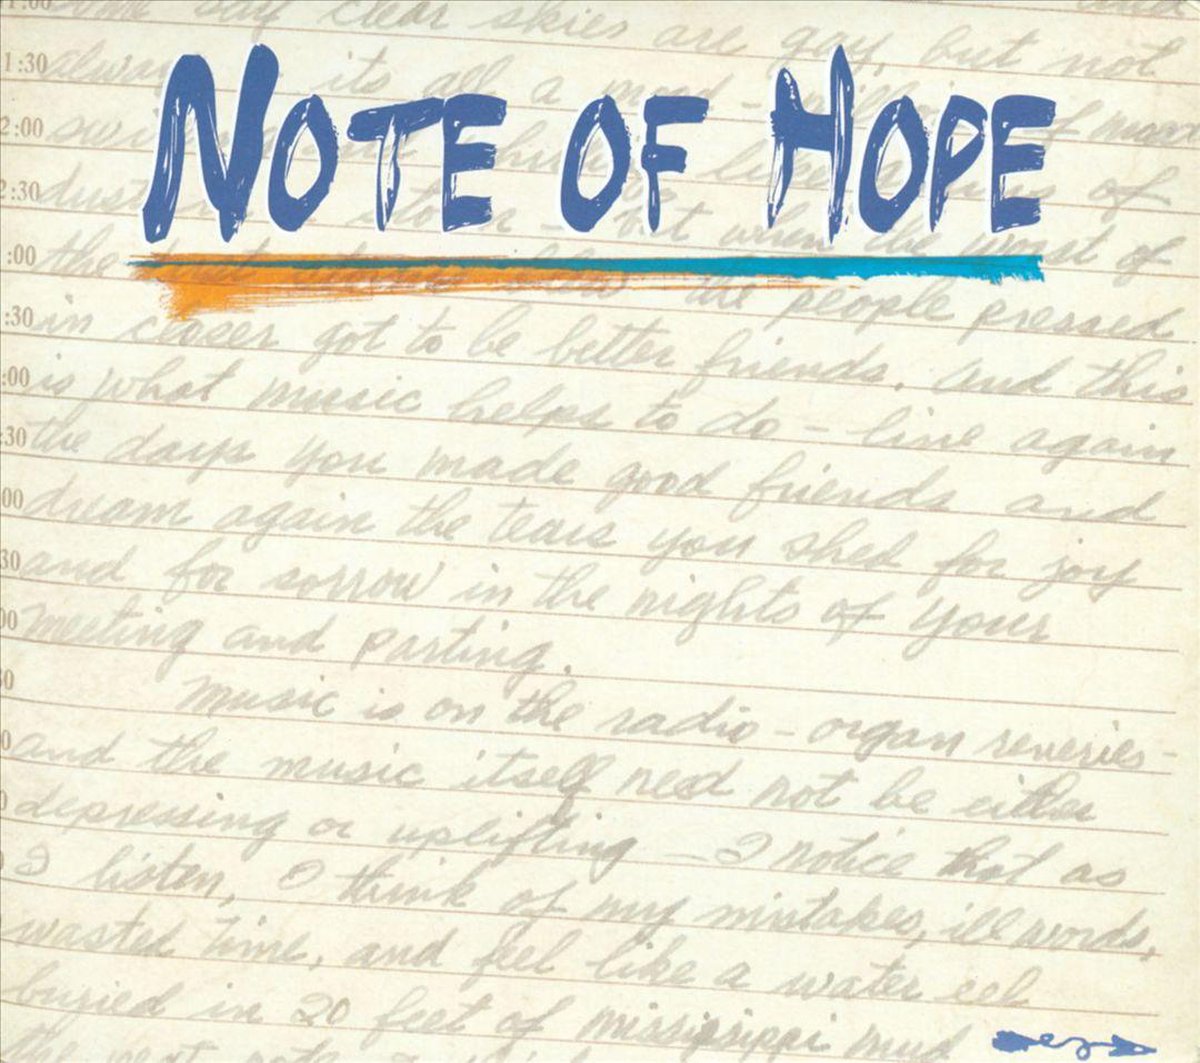 1:00 some day clear skies are gay, but not
NOTE OF HOPE
1:30 always its all a mood -
2:00
2:30 dust storm - but when the worst of
:00 the the people pressed
:30 in closer got to be better friends. and this
:00 is what music helps to do - line again
:30 the days you made good friends and
00 dream again the tears you shed for joy
30 and for sorrow in the nights of your
00 meeting and parting.
30 Music is on the radio - organ reveries -
0 and the music itself need not be either
0 depressing or uplifting - I notice that as
I listen, I think of my mistakes, ill words,
wasted time, and feel like a water eel
buried in 20 feet of mississippi mud
the